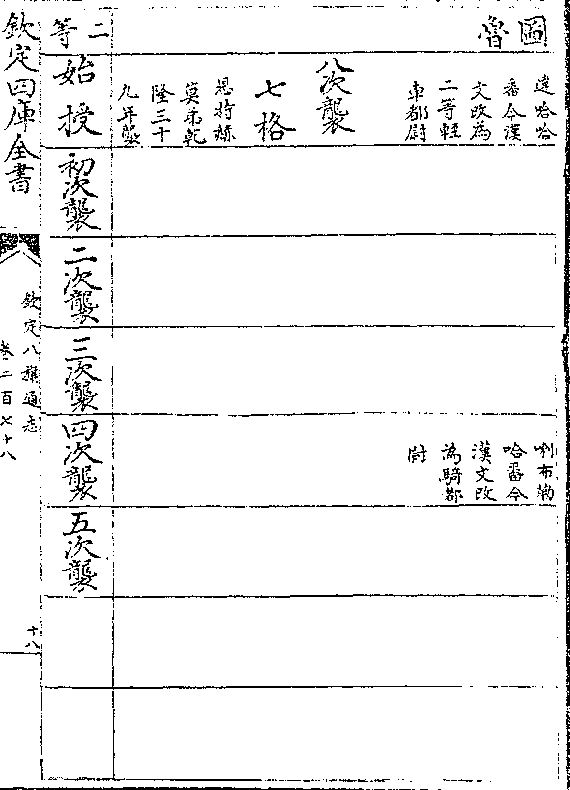 圖
魯
達哈哈
番今漢
文改為
二等輕
車都尉
八次襲
七格
恩特赫
莫弟乾
隆三十
九年襲
喇布勒
哈番今
漢文改
為騎都
尉
二等
始授
初次襲
二次襲
三次襲
四次襲
五次襲
欽定四庫全書
欽定八旗通志
卷二百七十八
十八